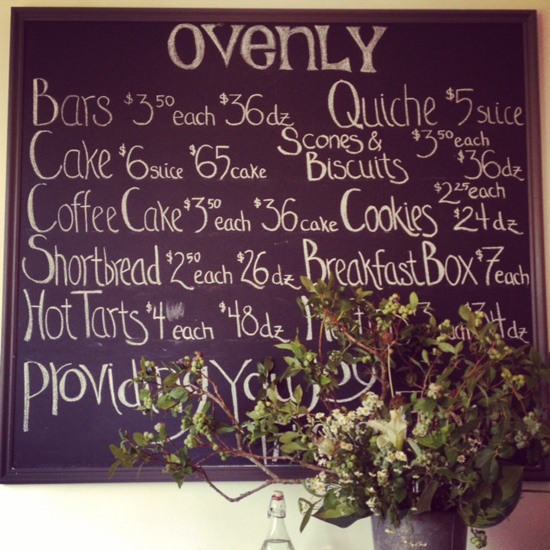 Ovenly
Bars $3.50 each $36 dz
Quiche $5 slice
Cake $6 slice $65 cake
Scones & Biscuits $3.50 each $36 dz
Coffee Cake $3.50 each $36 cake
Cookies $2.25 each $24 dz
Shortbread $2.50 each $26 dz
Breakfast Box $7 each
Hot Tarts $4 each $48 dz
each $34 dz
providing you joy